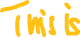 This is